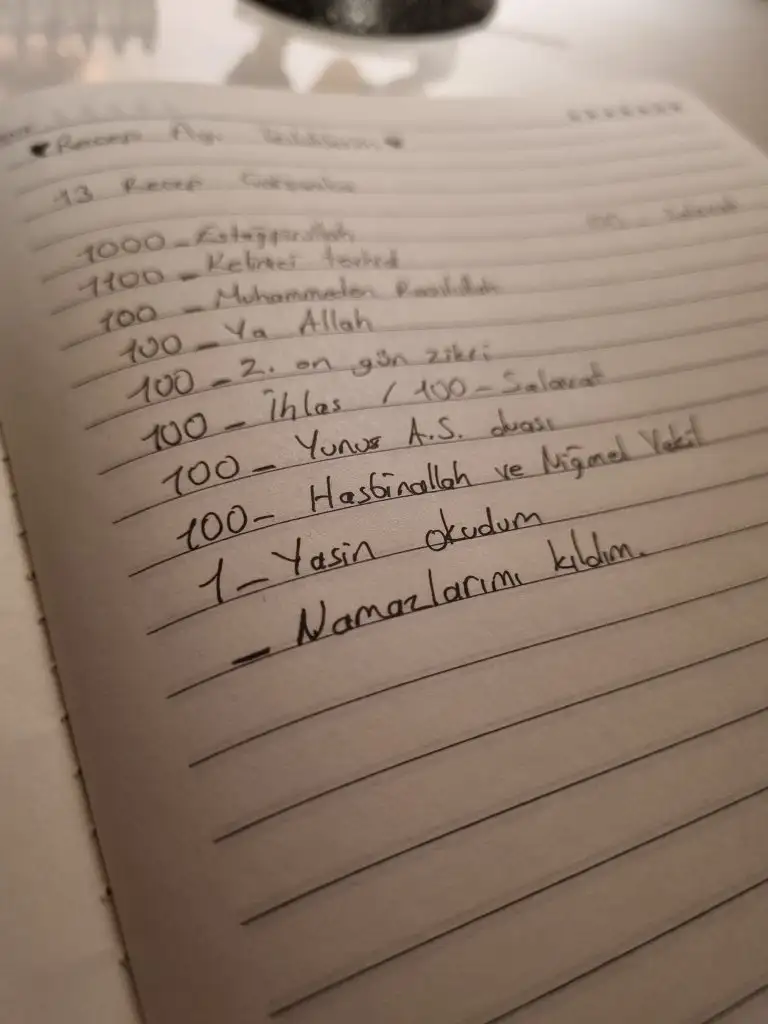 Recep Ayı
13 Recep
1000 - Estağfirullah
1100 - Kelimei tevhid
100 - Muhammeden Rasulullah
100 - Ya Allah
100 - 2. on gün zikri
100 - İhlas / 100 - Salavat
100 - Yunus A.S. duası
100 - Hasbinallah ve Niğmel Vekil
1 - Yasin okudum
- Namazlarımı kıldım.